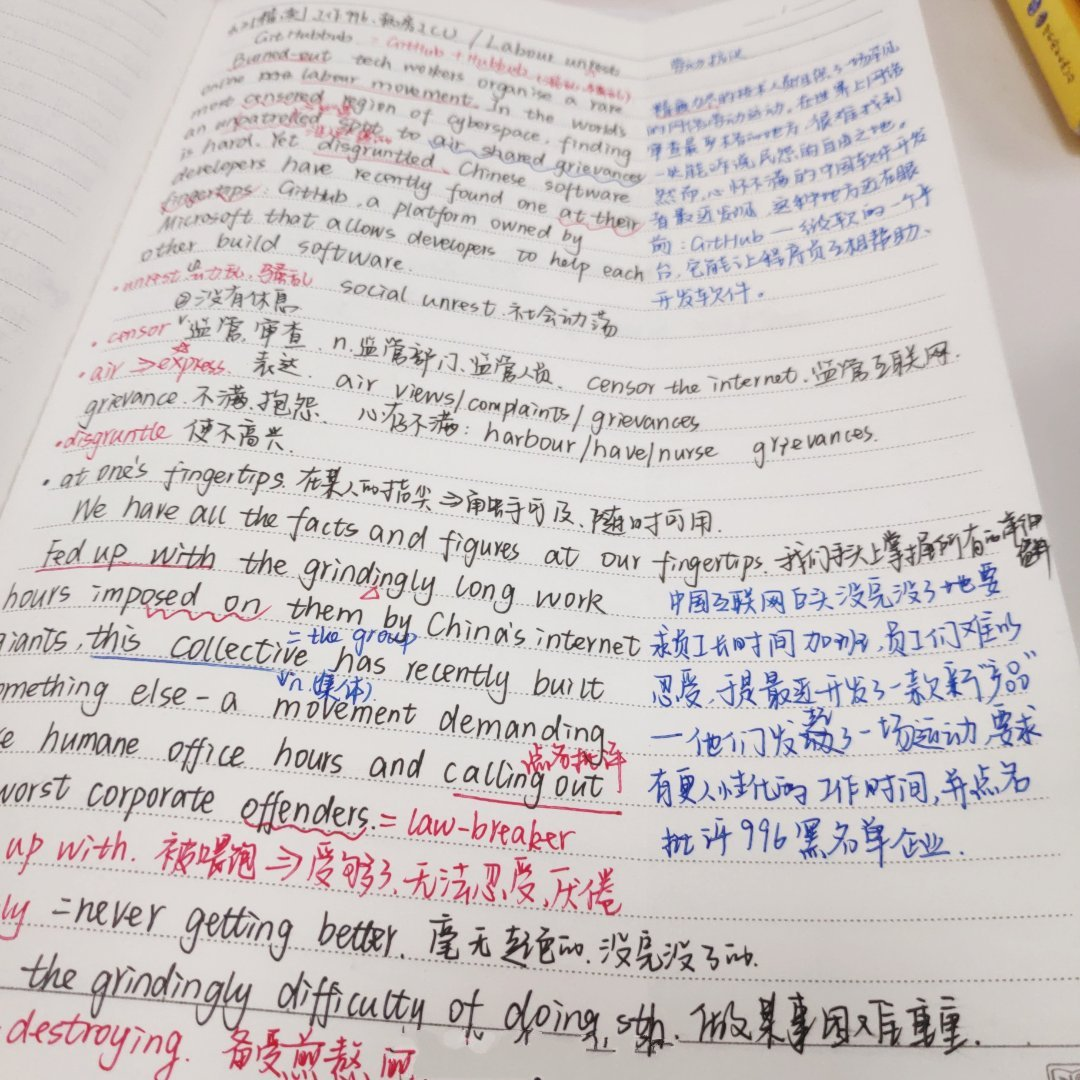 【精读】工作996.病房ICU / Labour unrest
GitHubbub = GitHub + Hubbub
劳动抗议
Burned-out tech workers organise a rare
online labour movement. In the world's
most censored region of cyberspace, finding
an unpatrolled spot to air shared grievances
is hard. Yet disgruntled Chinese software
developers have recently found one at their
fingertips. GitHub, a platform owned by
Microsoft that allows developers to help each
other build software.
精疲力尽的技术人员组织了一场罕见
的网络劳动运动。在世界上网络
审查最严格的地方,很难找到
一处能倾诉民怨的自由之地。
然而,心怀不满的中国软件开发
者最近发现,这种地方近在眼
前:GitHub—微软的一个平
台,它能让程序员互相帮助、
开发软件。
·unrest. 动乱, 骚乱 social unrest 社会动荡
②没有休息
·censor v 监管,审查. n.监管部门、监管人员. censor the internet.监管互联网.
·air ⇒express. 表达. air views/complaints/grievances
grievance.不满.抱怨. 心存不满: harbour/have/nurse grievances.
·disgruntle 使不高兴
·at one's fingertips.在某人的指尖⇒触手可及、随时可用.
We have all the facts and figures at our fingertips.我们手头上掌握所有的详细
资料
Fed up with the grindingly long work
hours imposed on them by China's internet
giants, this collective has recently built
= the group
n.(集体)
omething else – a movement demanding
e humane office hours and calling out
点名批评
worst corporate offenders. = law-breaker
中国互联网巨头没完没了地要
求员工长时间加班,员工们难以
忍受,于是最近开发了一款新"产品"
—他们发起了一场运动,要求
有更人性化的工作时间,并点名
批评996黑名单企业.
up with. 被喂饱⇒受够了、无法忍受,厌倦
ly =never getting better. 毫无起色的.没完没了的.
the grindingly difficulty of doing sth. 做某事困难重重.
destroying. 备受煎熬的